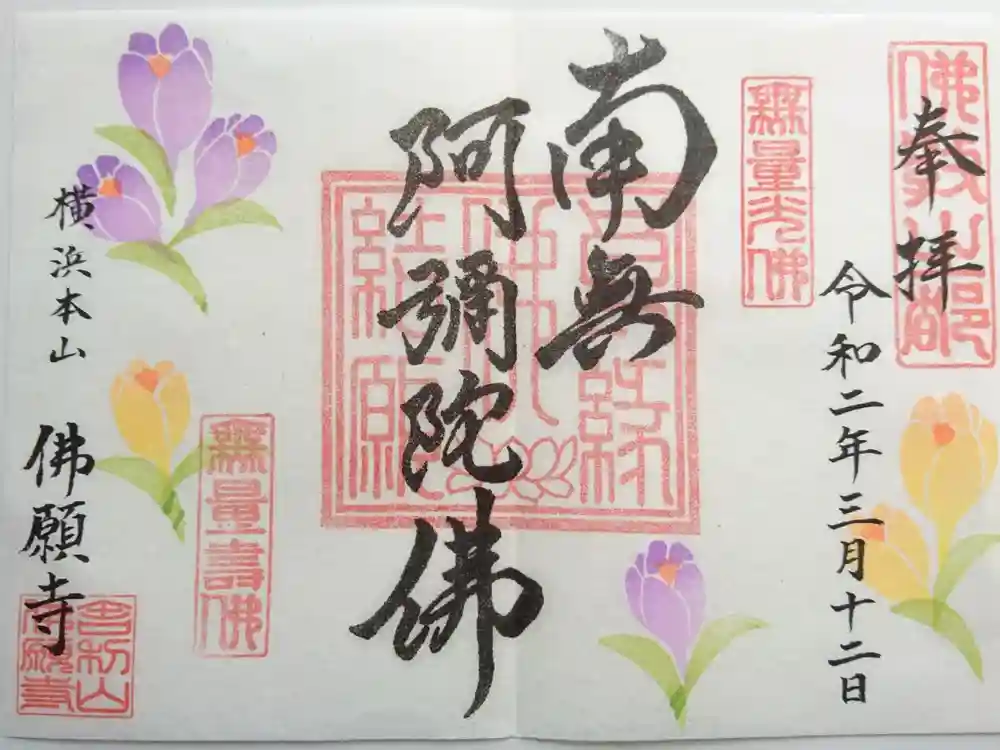 奉拝
令和二年三月十二日
無量光佛
南無
阿彌陀佛
無量壽佛
横浜本山
佛願寺